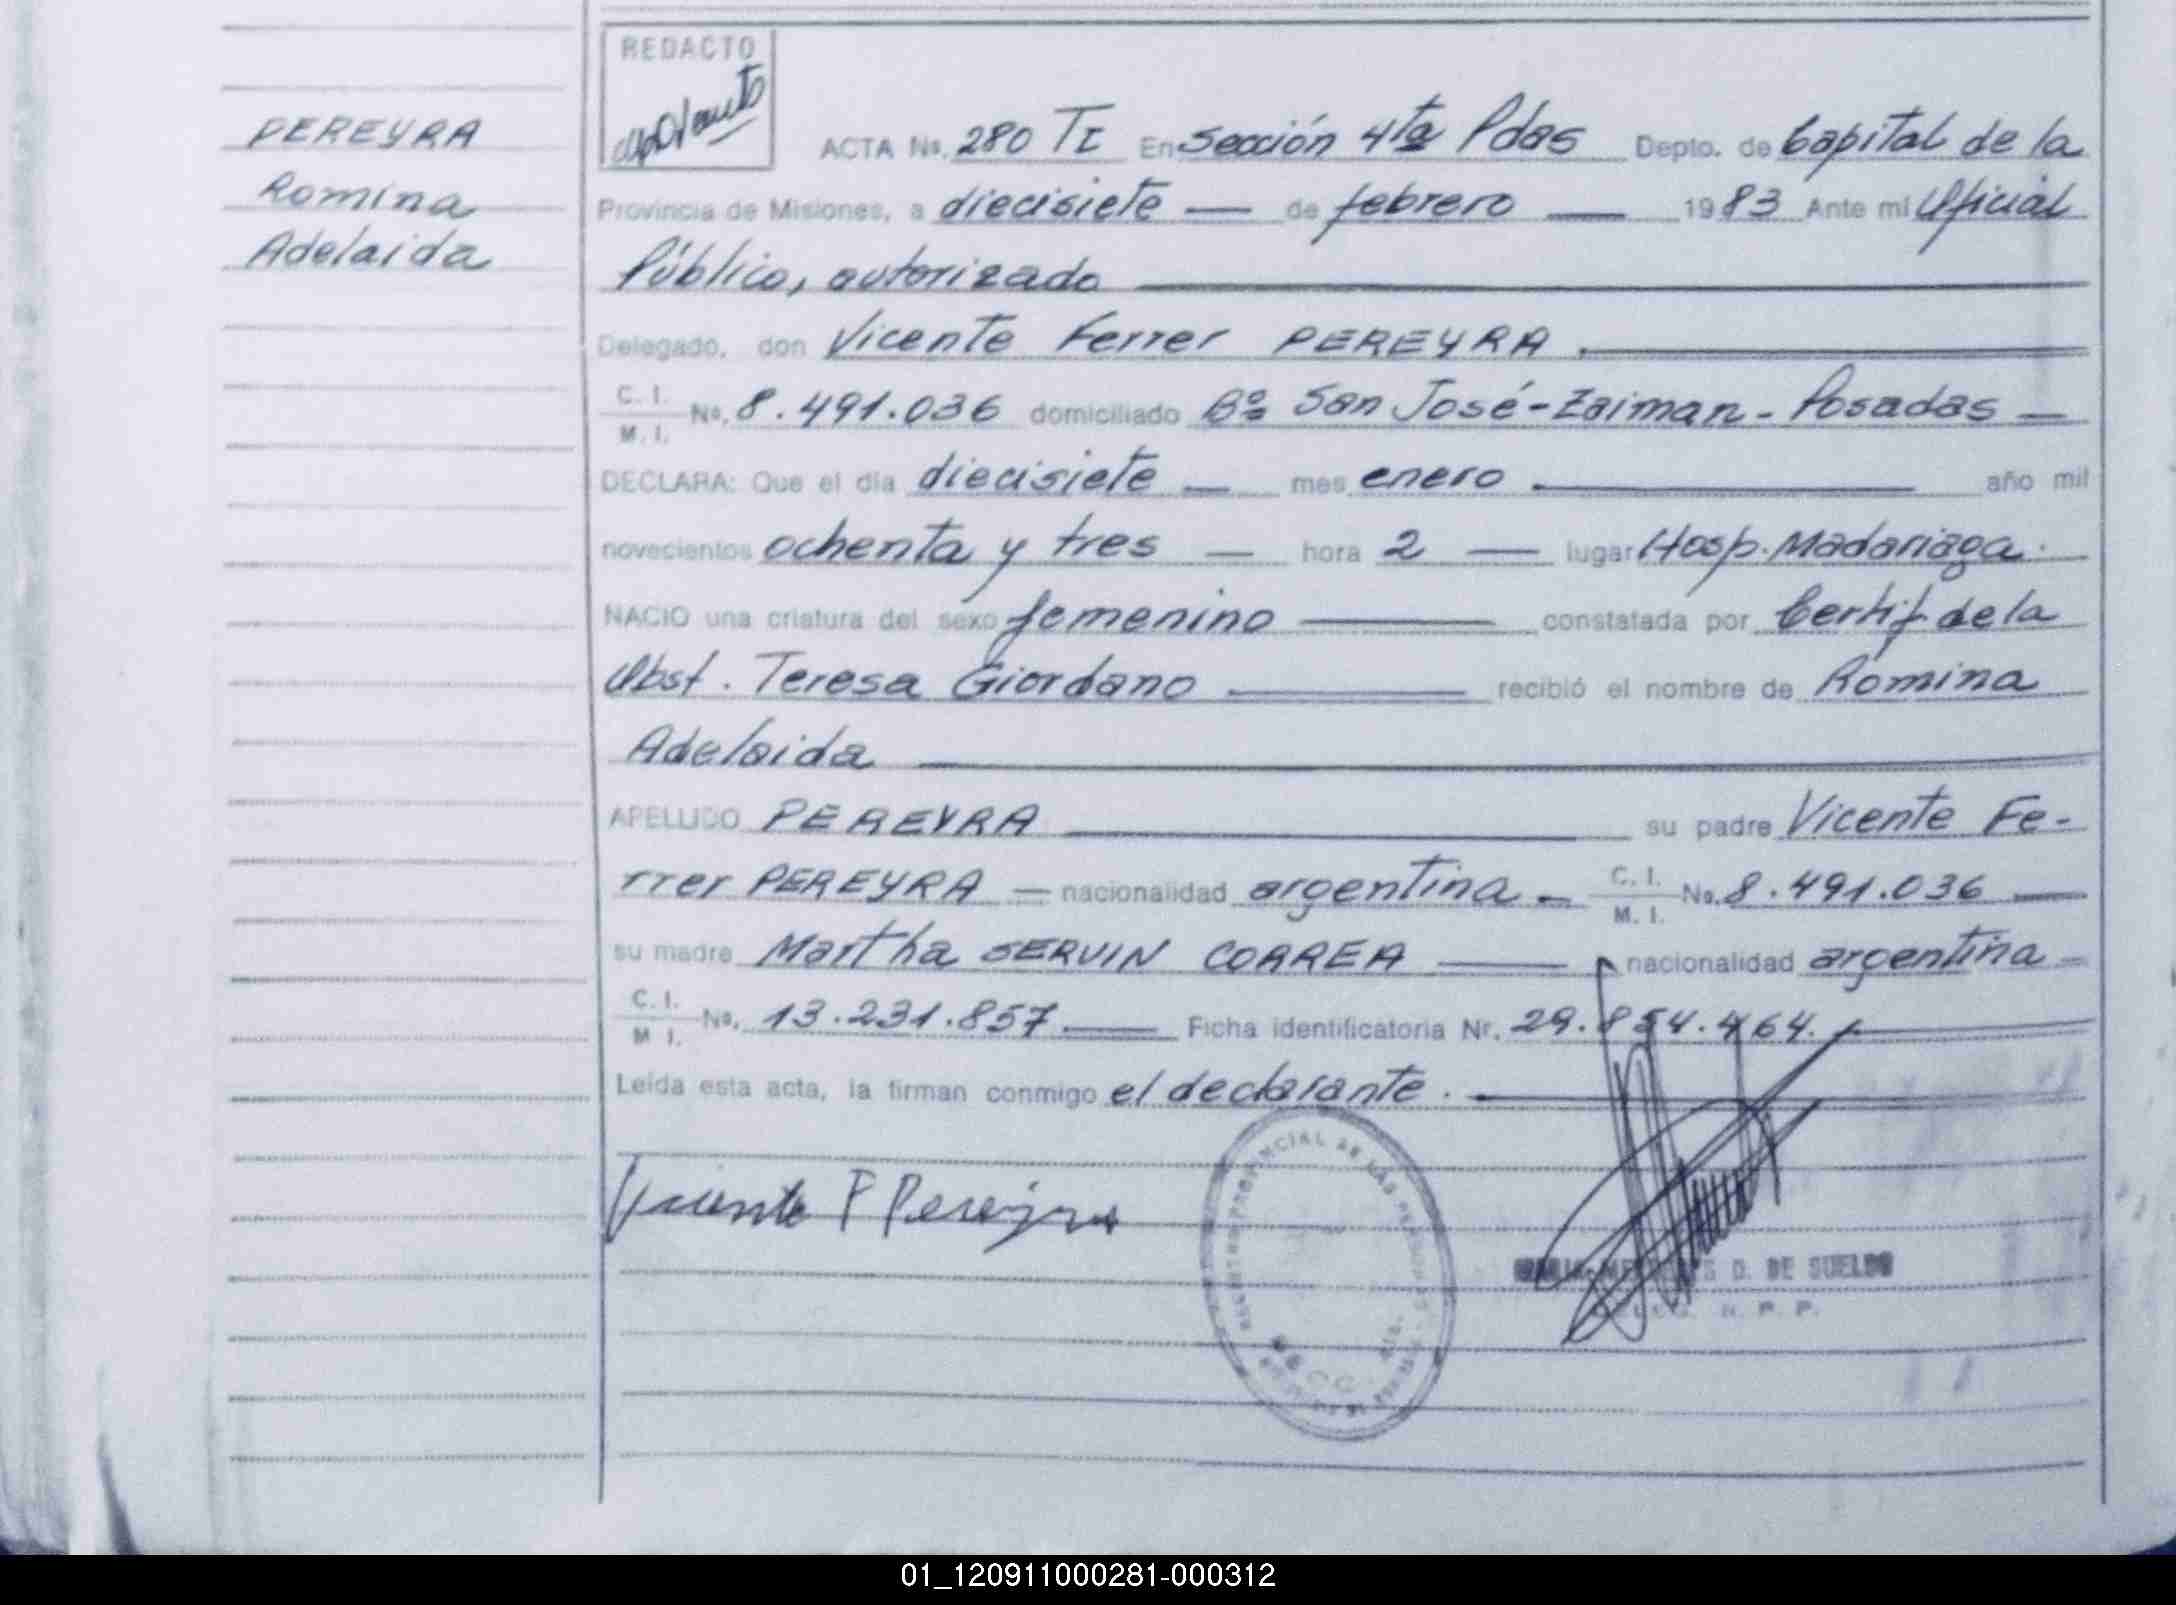 PEREYRA
Romina
Adelaida
REDACTO
ACTA No. 280 TI En Sección 4ta Pdas Depto. de Capital de la
Provincia de Misiones, a diecisiete — de febrero — 1983 Ante mi Oficial
Público, autorizado
Delegado, don Vicente Ferrer PEREYRA.
C. I.
M. I. No. 8.491.036 domiciliado Bº San José-Zaiman-Posadas —
DECLARA: Que el día diecisiete — mes enero — año mil
novecientos ochenta y tres — hora 2 — lugar Hosp. Madariaga.
NACIO una criatura del sexo femenino — constatada por Certif de la
Obst. Teresa Giordano — recibió el nombre de Romina
Adelaida
APELLIDO PEREYRA — su padre Vicente Fe-
rrer PEREYRA = nacionalidad argentina - C. I. M. I. No. 8.491.036 —
su madre Martha SERVIN CORREA — nacionalidad argentina -
C. I.
M I. No. 13.231.857 — Ficha identificatoria Nr. 29.854.464.
Leída esta acta, la firman conmigo el declarante.
Vicente F Pereyra
D. DE SUELDO
R. P. P.
01_120911000281-000312